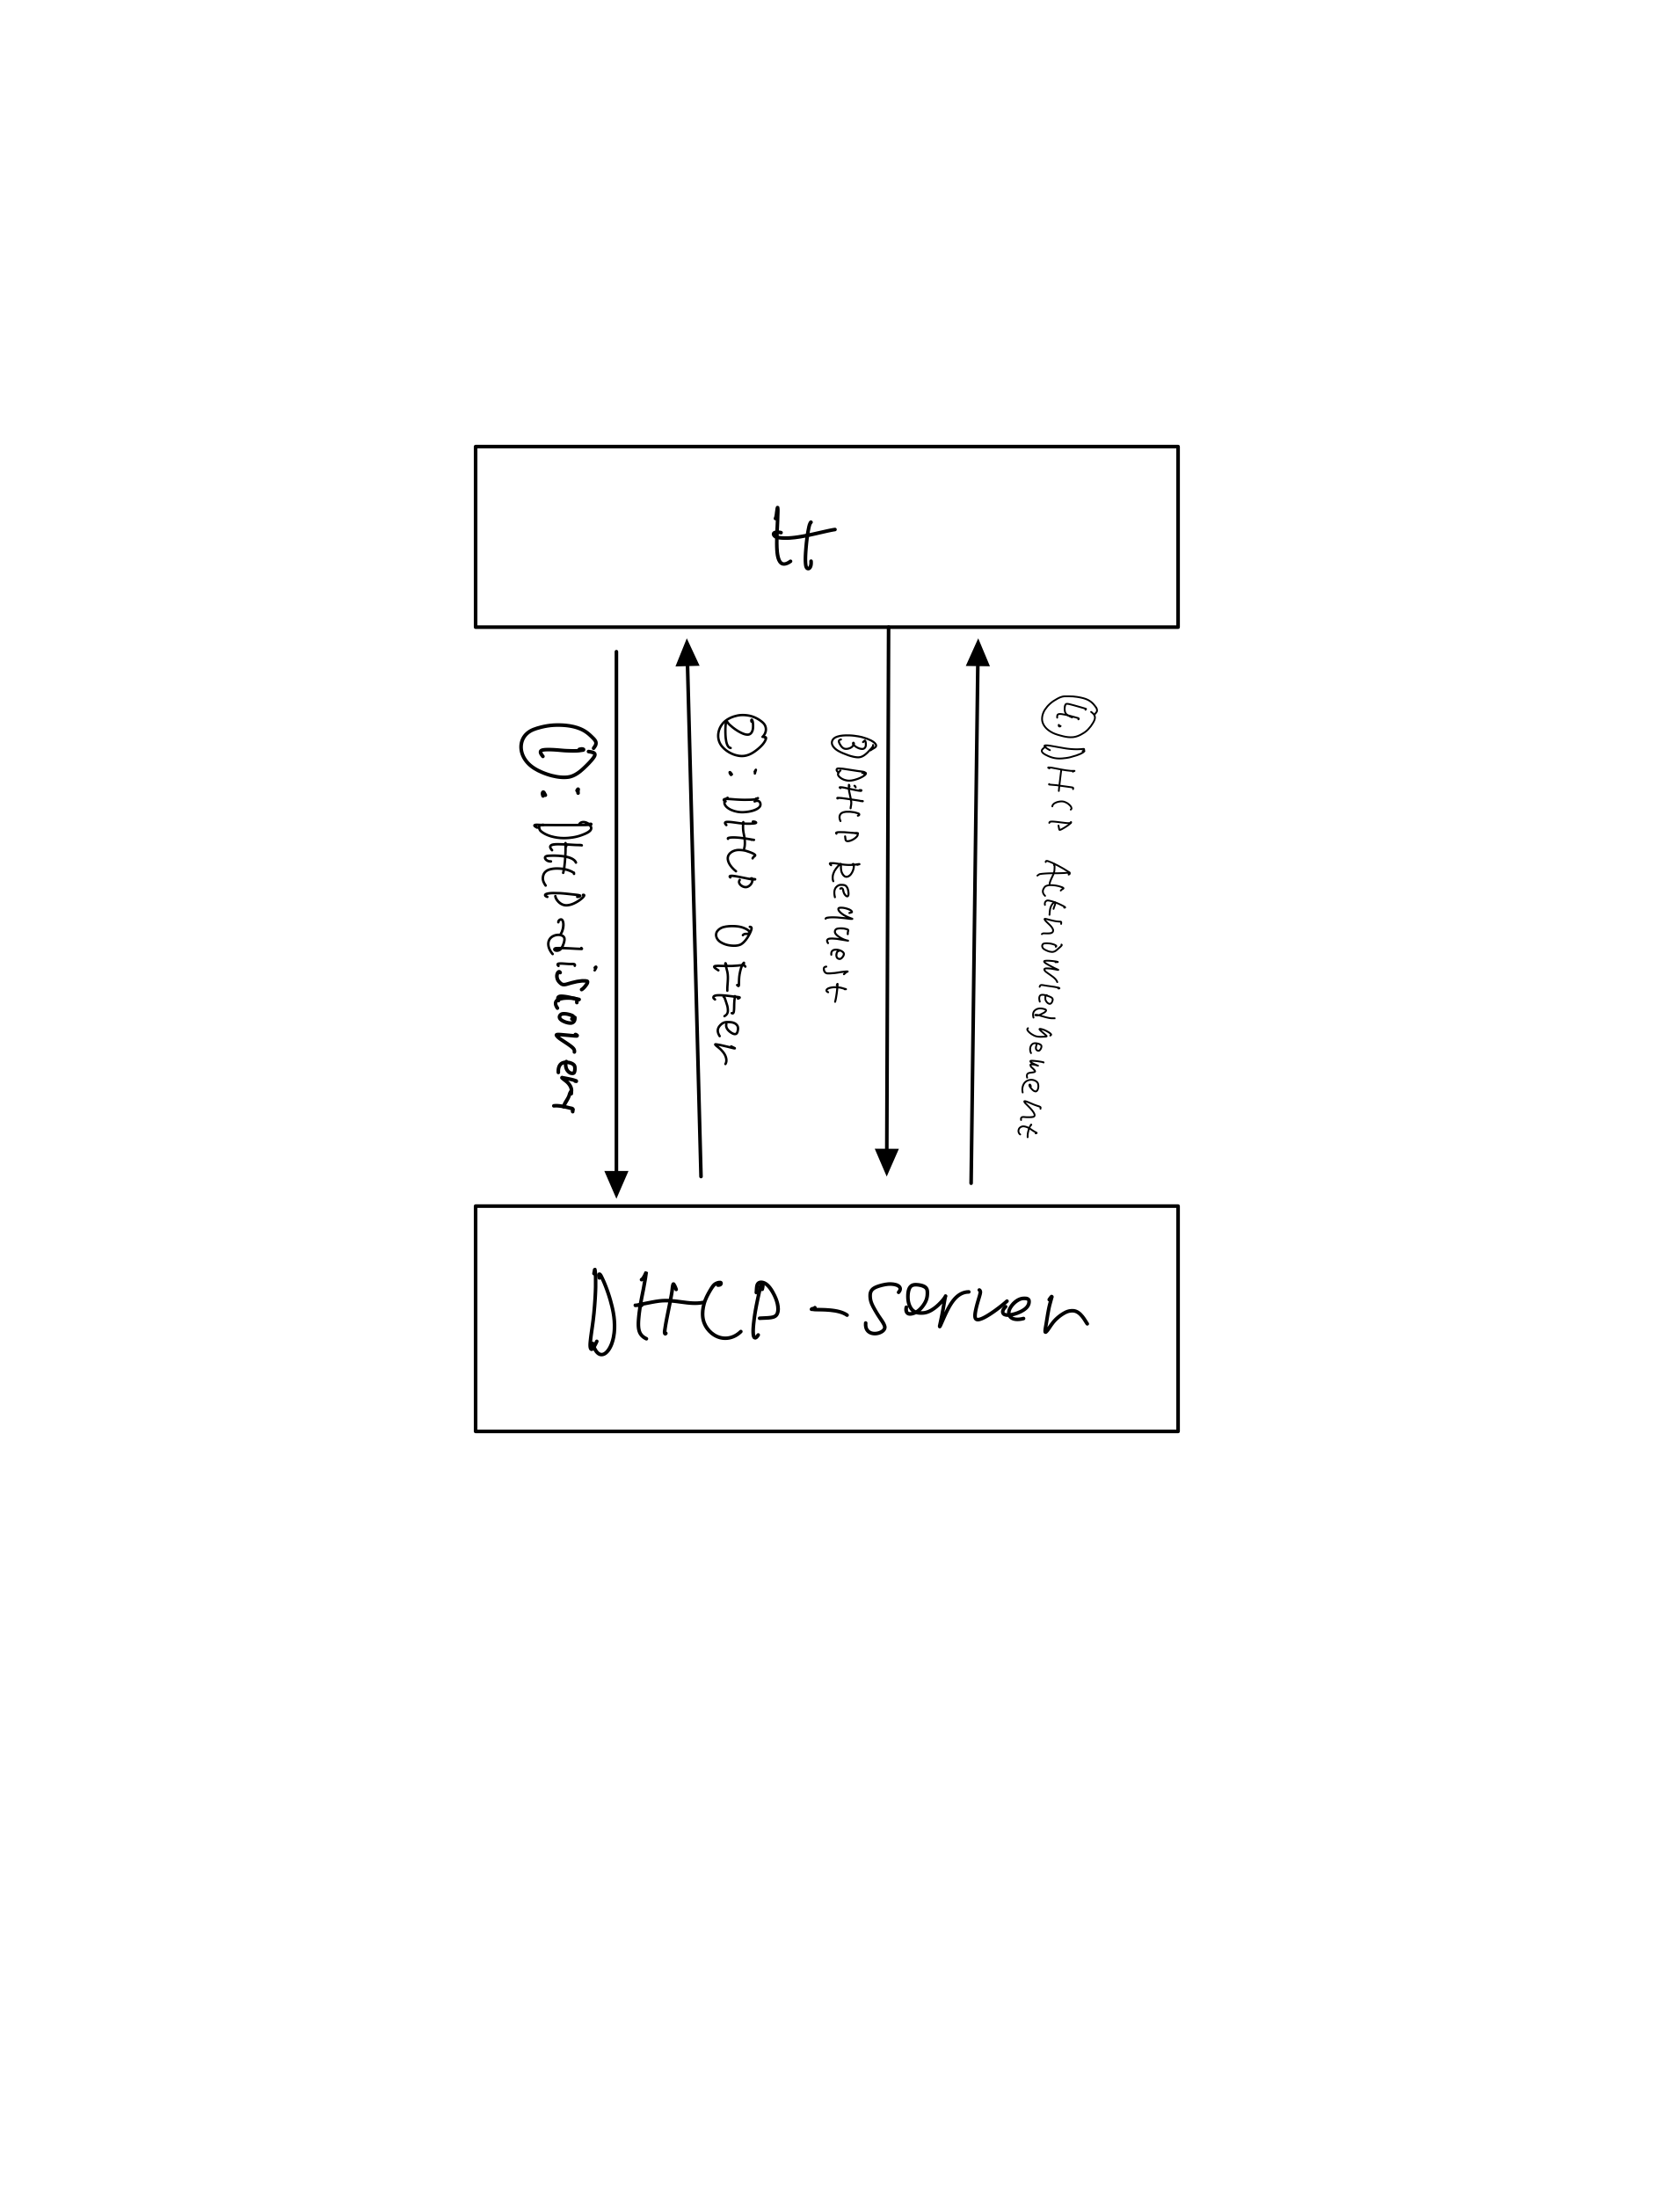 H
①: DHCP discovery
②: DHCP Offer
③ DHCP Request
④. DHCP Acknowledgement
DHCP-server